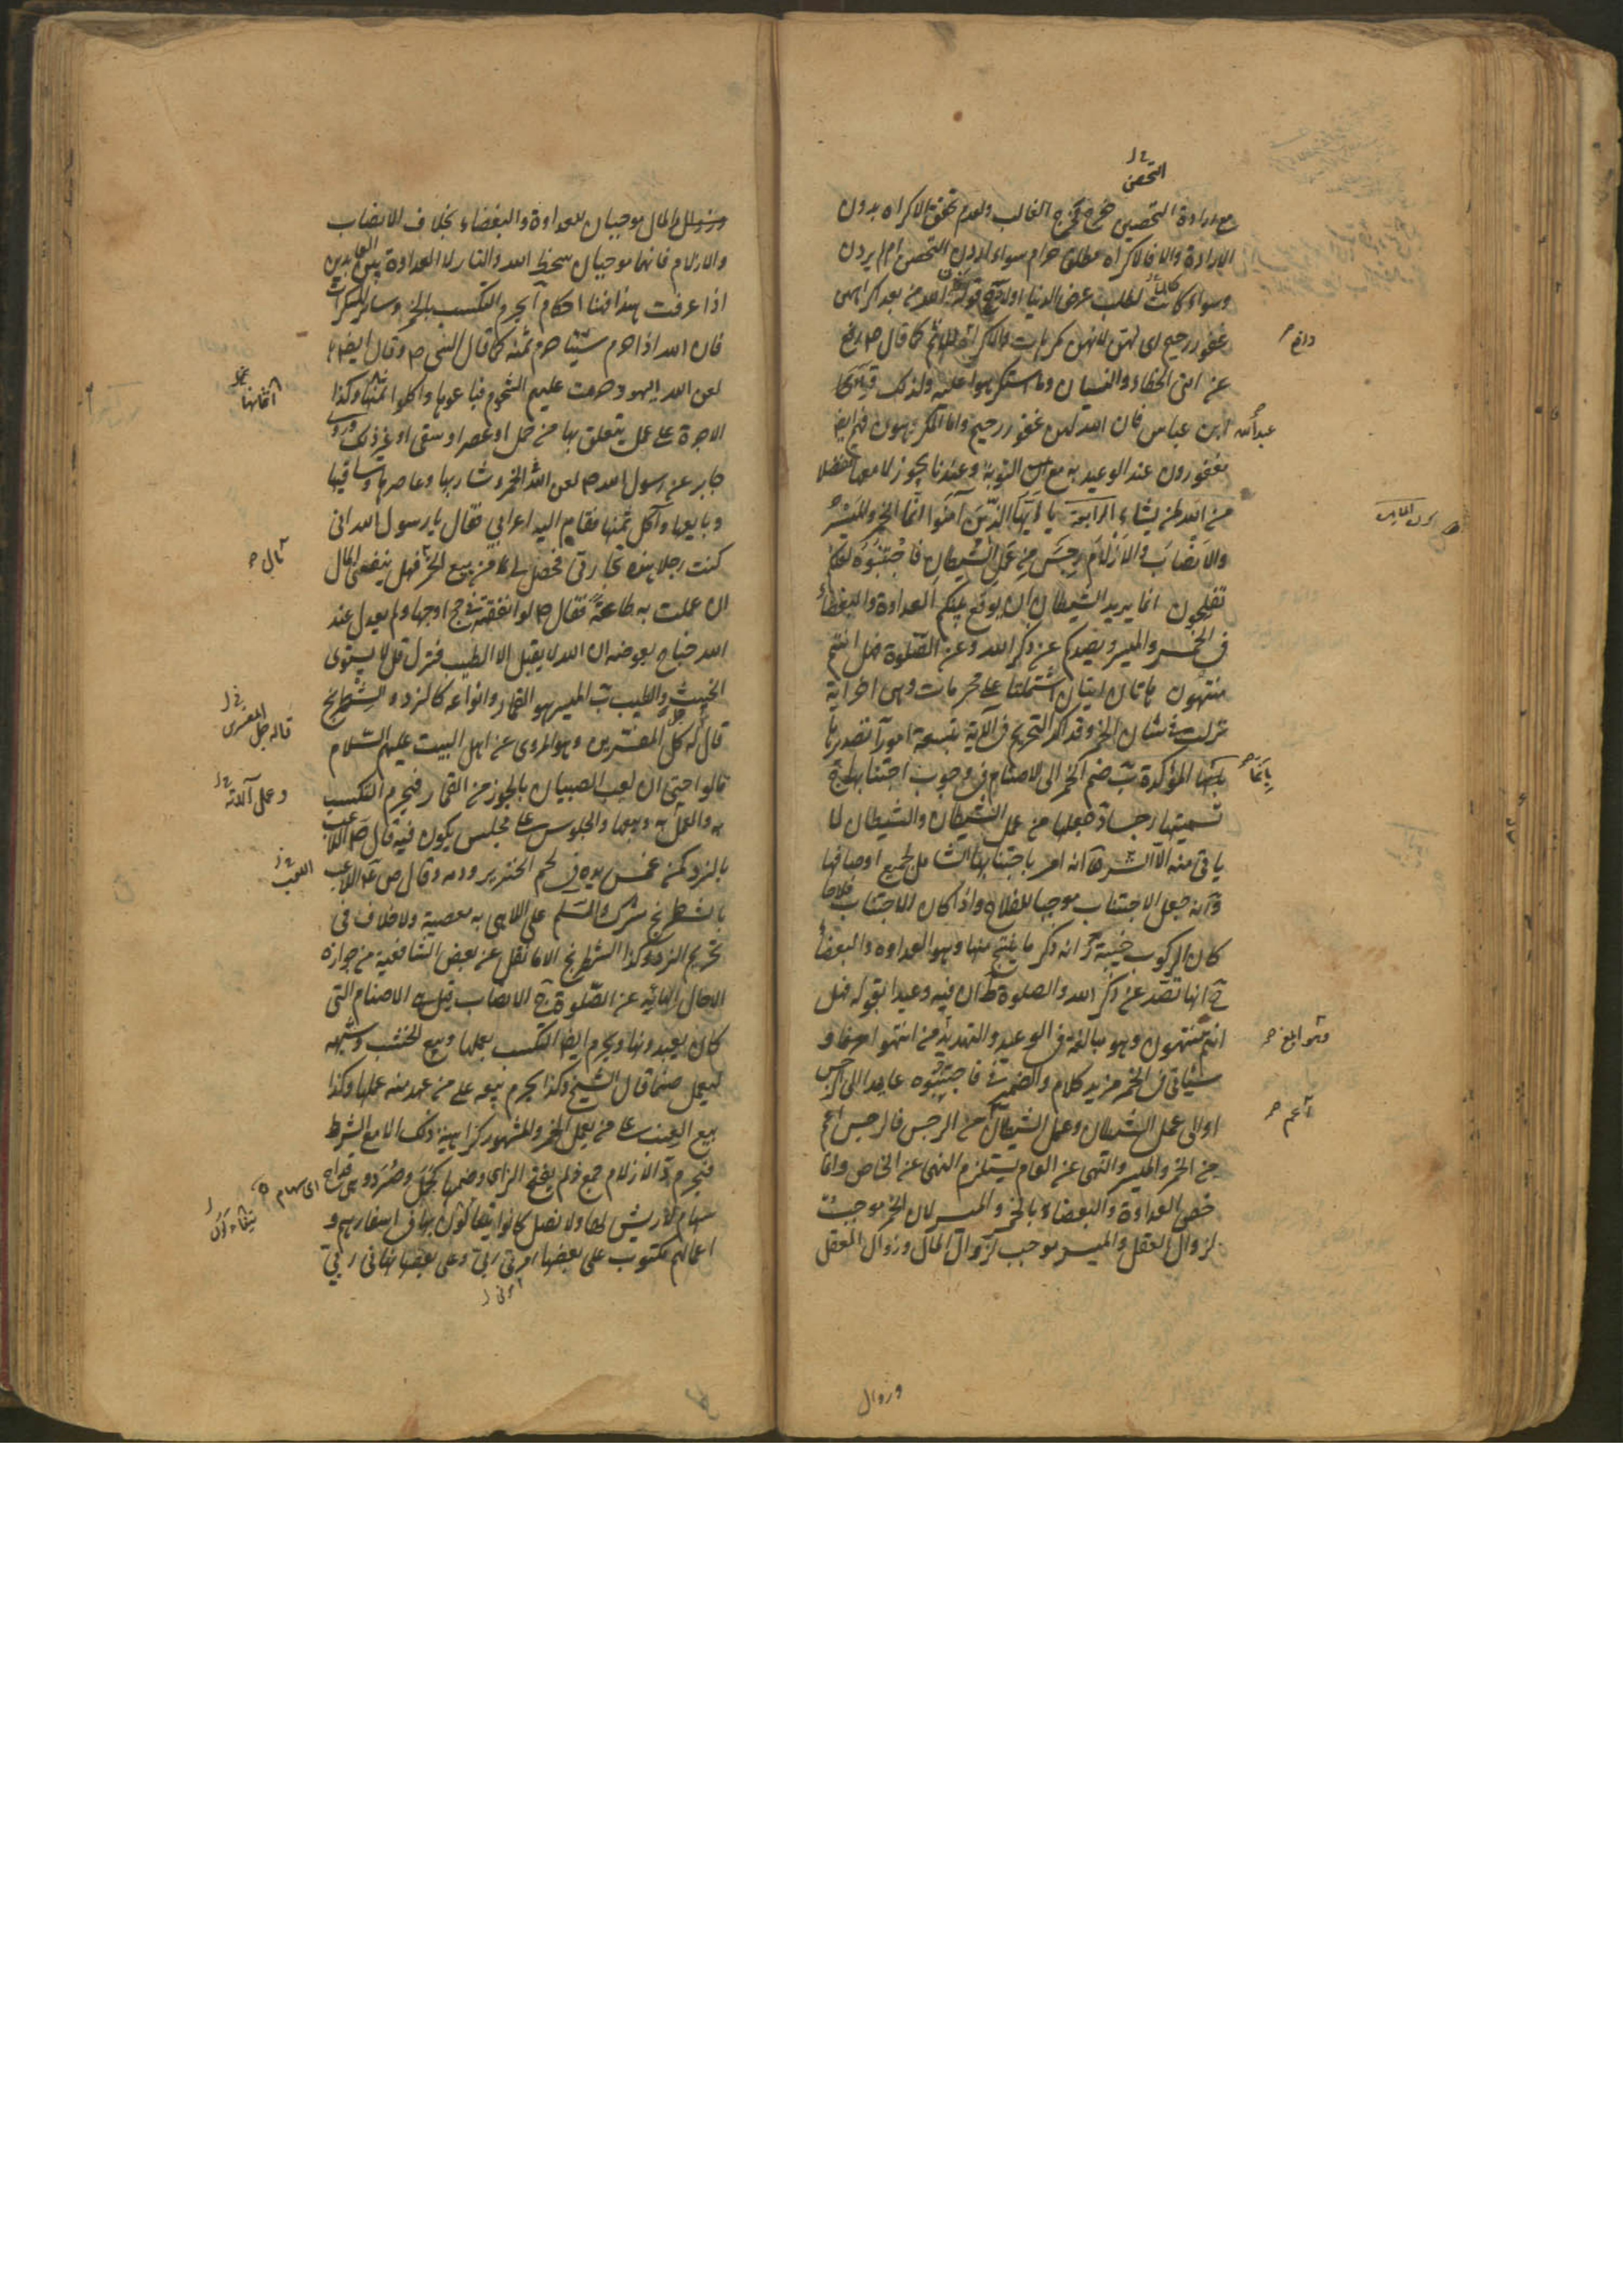 التحصن
مع ارادة التحصن خرج مخرج الغالب ولعدم تحقق الاكراه بدون
الارادة والا فالاكراه مطلق حرام سواء اردن التحصن ام لم يردن
وسواء كانت لطلب عرض الدنيا اولا قوله فان الله من بعد اكراههن
غفور رحيم اى لهن لانهن مكرهات والاكراه كما قال ص رفع
عن امتى الخطاء والنسيان وما استكرهوا عليه ولذلك
عبد الله ابن عباس فان الله لهن غفور رحيم واما المكرهون فهم ايض
مغفورون عند الوعيدية مع التوبة وعندنا يجوز لا معها تفضلا
من الله لمن يشاء الرابعة يا ايها الذين آمنوا انما الخمر والميسر
والانصاب والازلام رجس من عمل الشيطان فاجتنبوه لعلكم
تفلحون انما يريد الشيطان ان يوقع بينكم العداوة والبغضاء
فى الخمر والميسر ويصدكم عن ذكر الله وعن الصلوة فهل انتم
منتهون هاتان ايتان اشتملتا على محرمات وهى اخر اية
نزلت فى شان الخمر وقد اكد التحريم فى الآية بتسعة امور آ تصديرها
بانما المؤكدة ب ضم الخمر الى الاصنام فى وجوب اجتنابها ج
تسميتها رجسا د جعلها من عمل الشيطان والشيطان لا
ياتى منه الا الشر ه انه امر باجتنابها الشامل لجميع اوصافها
و انه جعل الاجتناب موجبا للفلاح واذا كان الاجتناب فلاحا
كان الركوب خيبة ز انه ذكر ما ينتج منها وهو العداوة والبغضاء
ح انها تصد عن ذكر الله والصلوة ط ان فيه وعيدا بقوله فهل
انتم منتهون وهو مبالغة فى الوعيد والتهديد من انتهوا
سياتى فى الخمر مزيد كلام والضمير فى فاجتنبوه عايد الى الرجس
او الى عمل الشيطان وعمل الشيطان من الرجس فالرجس اعم
من الخمر والميسر والنهى عن العام يستلزم النهى عن الخاص وانما
خص العداوة والبغضاء بالخمر والميسر لان الخمر موجبة
لزوال العقل والميسر موجب لزوال المال وزوال العقل
وزوال
عبد الله
بانما
وهو ابلغ
اعم
وزوال المال موجبان للعداوة والبغضاء بخلاف الانصاب
والازلام فانهما موجبان سخط الله والنار لا العداوة بين العابدين
اذا عرفت هذا فهنا احكام آ يحرم التكسب بالخمر وساير المسكرات
فان الله اذا حرم شيئا حرم ثمنه كما قال النبى ص وقال ايض
لعن الله اليهود حرمت عليهم الشحوم فباعوها واكلوا ثمنها وكذا
الاجرة على عمل يتعلق بها من حمل او عصر او سقى او غير ذلك وروى
جابر عن رسول الله ص لعن الله الخمر وشاربها وعاصرها وساقيها
وبايعها وآكل ثمنها فقام اليه اعرابى فقال يا رسول الله انى
كنت رجلا هذه تجارتى فحصل لى من بيع الخمر فهل ينفعنى المال
ان عملت به طاعة فقال ص لو انفقته فى حج او جهاد لم يعدل عند
الله جناح بعوضة ان الله لا يقبل الا الطيب فنزل قل لا يستوى
الخبيث والطيب ب الميسر هو القمار وانواعه كالنرد والشطرنج
قال له كل المفسرين وهو المروى عن اهل البيت عليهم السلام
قالوا حتى ان لعب الصبيان بالجوز من القمار فيحرم التكسب
به والعمل به وبيعها والجلوس على مجلس يكون فيه قال ص اللاعب
بالنرد كمن غمس يده فى لحم الخنزير ودمه وقال ص ع اللاعب
بالشطرنج شرك والسلم على اللاهى به معصية ولا خلاف فى
تحريم النرد وكذا الشطرنج الا ما نقل عن بعض الشافعية من جوازه
الا حال الهائه عن الصلوة ج الانصاب قيل هى الاصنام التى
كان يعبدونها ويحرم ايضا التكسب بعملها وبيع الخشب وشبهه
ليعمل صنما قال الشيخ وكذا يحرم بيعه على من عهد منه عملها وكذا
بيع العنب على من يعمل الخمر والمشهور كراهية ذلك الا مع الشرط
فيحرم د الازلام جمع زلم بفتح الزاى وضمها كجمل وصرد وهى قداح
سهام لا ريش لها ولا نصل كانوا يتفالون بها فى اسفارهم و
اعمالهم مكتوب على بعضها امرنى ربى وعلى بعضها نهانى ربى
اثمانها
مالى
قاله جل المفسرين
وعمل آلاته
اللعب
اى سهام
امرنى